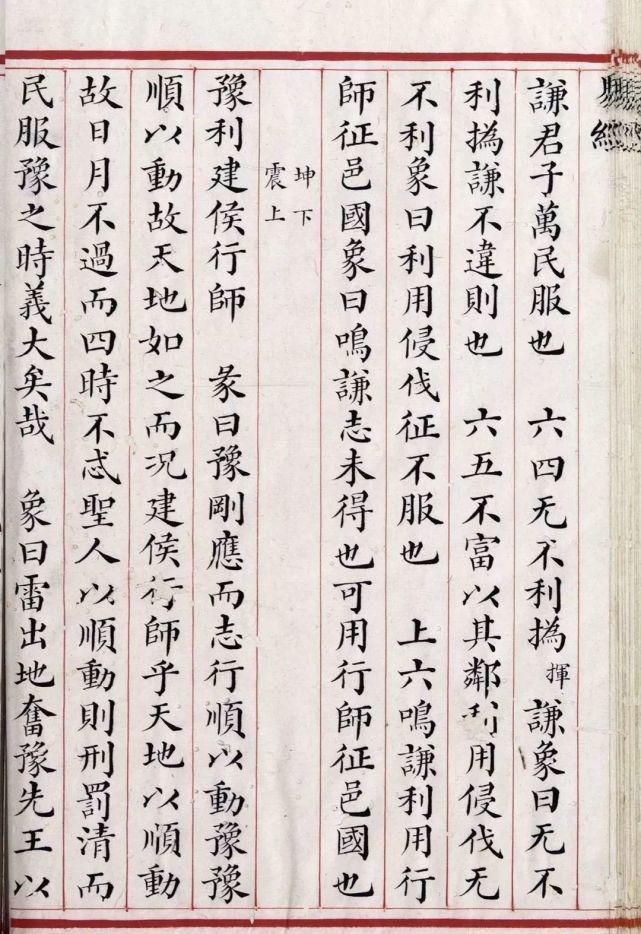 謙君子萬民服也 六四无不利撝揮謙象曰无不
利撝謙不違則也 六五不富以其鄰利用侵伐无
不利象曰利用侵伐征不服也 上六鳴謙利用行
師征邑國象曰鳴謙志未得也可用行師征邑國也
坤下
震上
豫利建侯行師 彖曰豫剛應而志行順以動豫豫
順以動故天地如之而況建侯行師乎天地以順動
故日月不過而四時不忒聖人以順動則刑罰清而
民服豫之時義大矣哉 象曰雷出地奮豫先王以